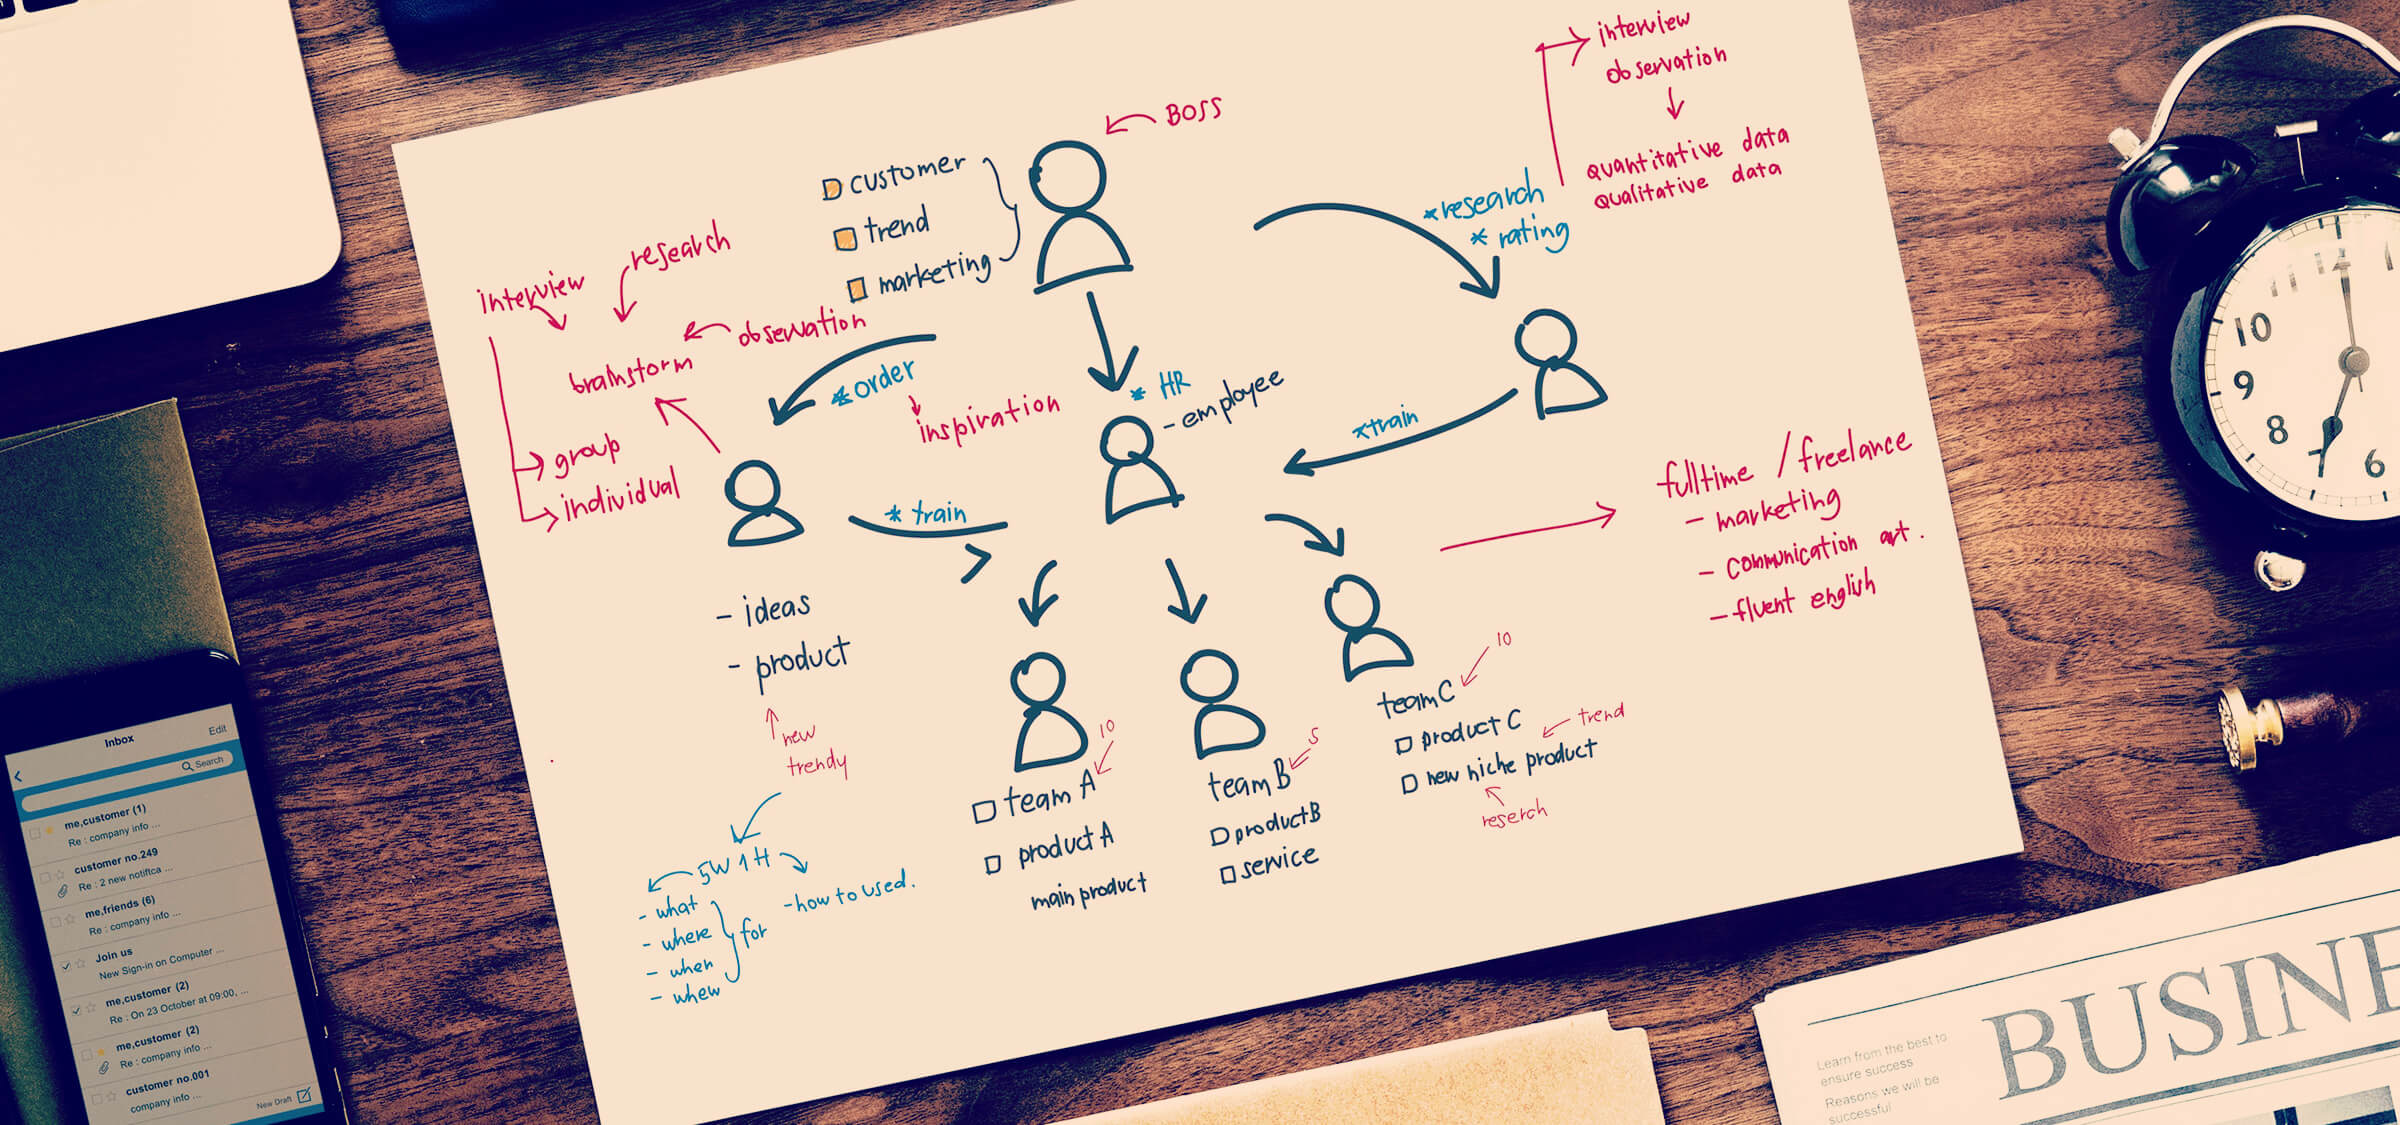 BOSS
customer
trend
marketing
research
interview
observation
brainstorm
group
individual
*order
inspiration
* HR
- employee
*research
* rating
interview
observation
quantitative data
qualitative data
* train
*train
fulltime / freelance
- marketing
- communication art.
- fluent english
- ideas
- product
new
trendy
5W 1H
- what
- where
- when
- whew
for
- how to used.
10
team A
product A
main product
5
team B
product B
service
10
team C
product C
trend
new niche product
reserch
Inbox
Edit
Search
me,customer (1)
Re : company info ...
customer no.249
Re : 2 new notifica ...
me,friends (6)
Re : company info ...
Join us
New Sign-in on Computer ...
me,customer (2)
Re : On 23 October at 09:00, ...
me,customer (2)
Re : company info ...
customer no.001
company info ...
New Draft
12
10
9
8
6
BUSINE
Learn from the best to
ensure success
Reasons we will be
successful